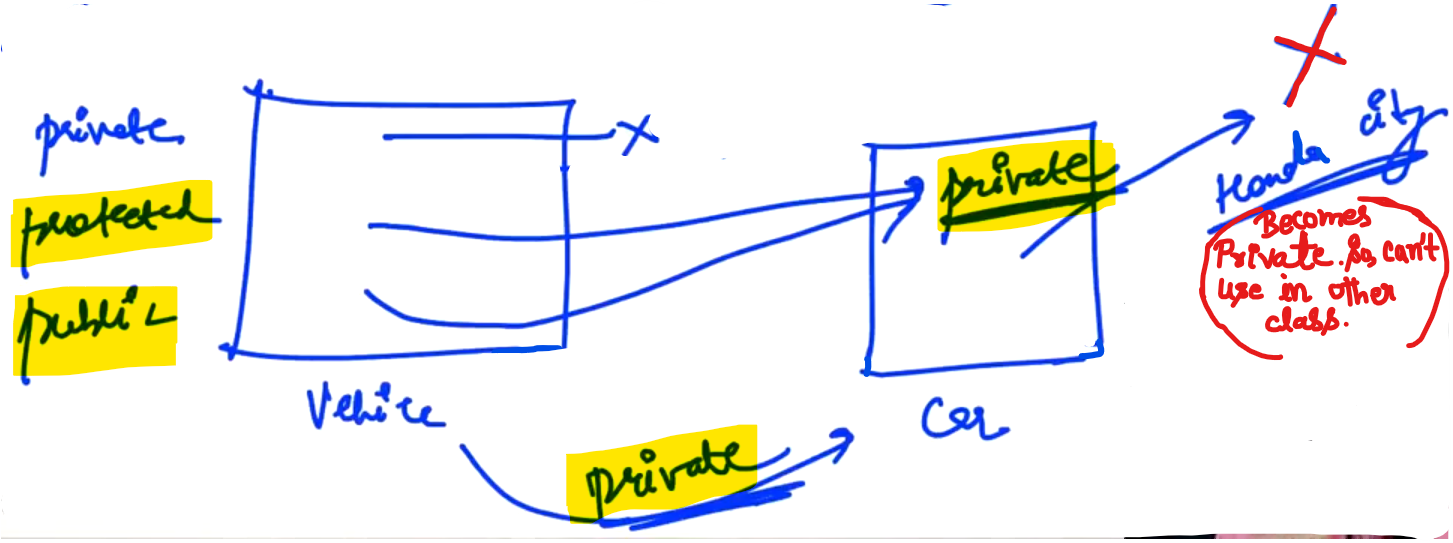 private
protected
public
Vehicle
private
Car
private
Honda city
Becomes
Private. So, can't
use in other
class.